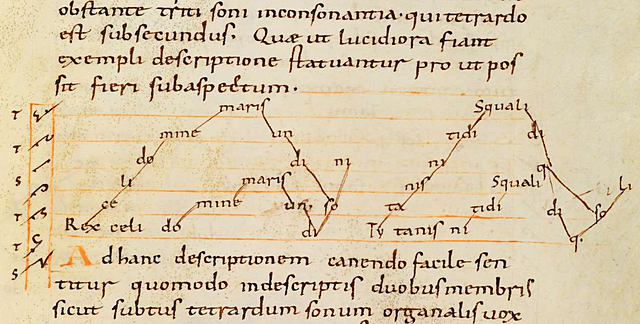 obstante triti soni inconsonantia· qui tetrardo
est subsecundus. Quae ut lucidiora fiant
exempli descriptione statuantur pro ut pos
sit fieri sub aspectum.
T maris Squali
mine un tidi di
T do di ni ni q
S li maris nis Squali li
T ce mine un so ta tidi di so
T Rex celi do di Ty tanis ni q.
S
Ad hanc descriptionem canendo facile sen
titur quomodo in descriptis duobus membris
sicut subtus tetrardum sonum organalis vox